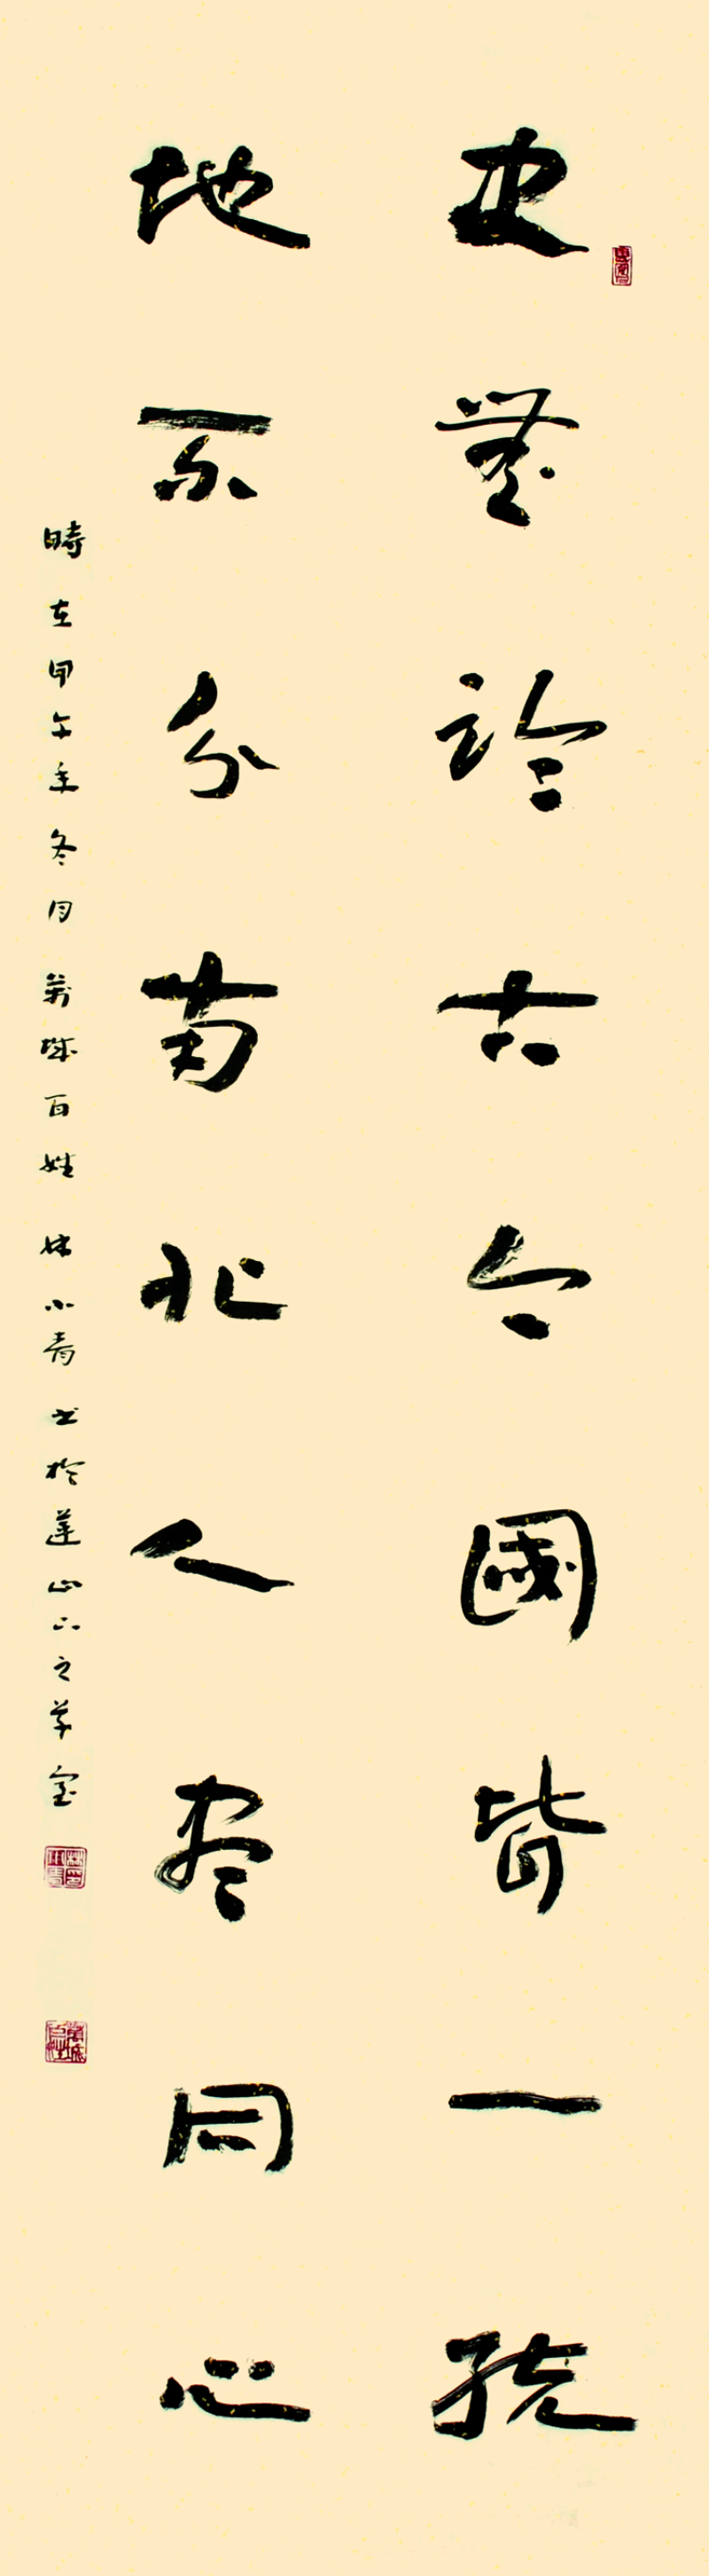 史無論古今國皆一統
地不分南北人盡同心
時在甲午年冬月萬城百姓林小青書於蓮山下之草室